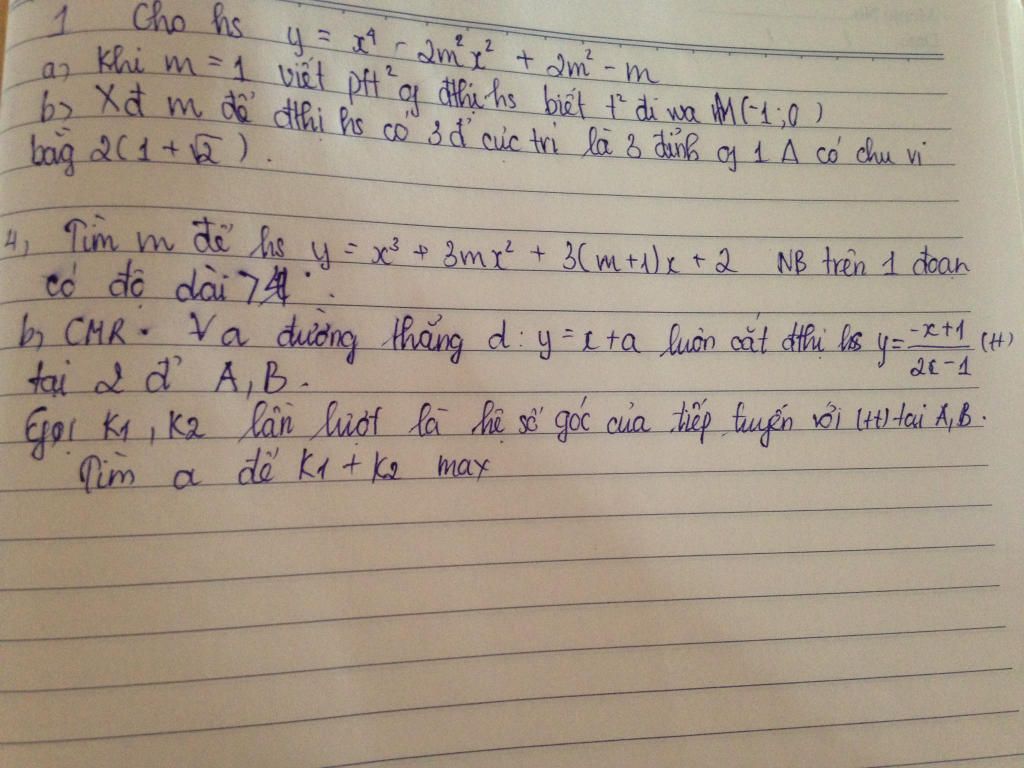 1 Cho hs y = x⁴ - 2m²x² + 2m² - m
a, Khi m = 1 viết pft² of đthị hs biết t² đi wa M(-1;0)
b, Xđ m để đthị hs có 3 đ' cực trị là 3 đỉnh of 1 Δ có chu vi
bằg 2(1 + √2).
4, Tìm m để hs y = x³ + 3mx² + 3(m+1)x + 2 NB trên 1 đoạn
có độ dài > 4.
b, CMR. ∀a đường thẳng d: y = x + a luôn cắt đthị hs y = (-x+1)/(2x-1) (H)
tại 2 đ' A, B.
Gọi K1, K2 lần lượt là hệ số góc của tiếp tuyến với (H) tại A, B.
Tìm a để K1 + K2 max